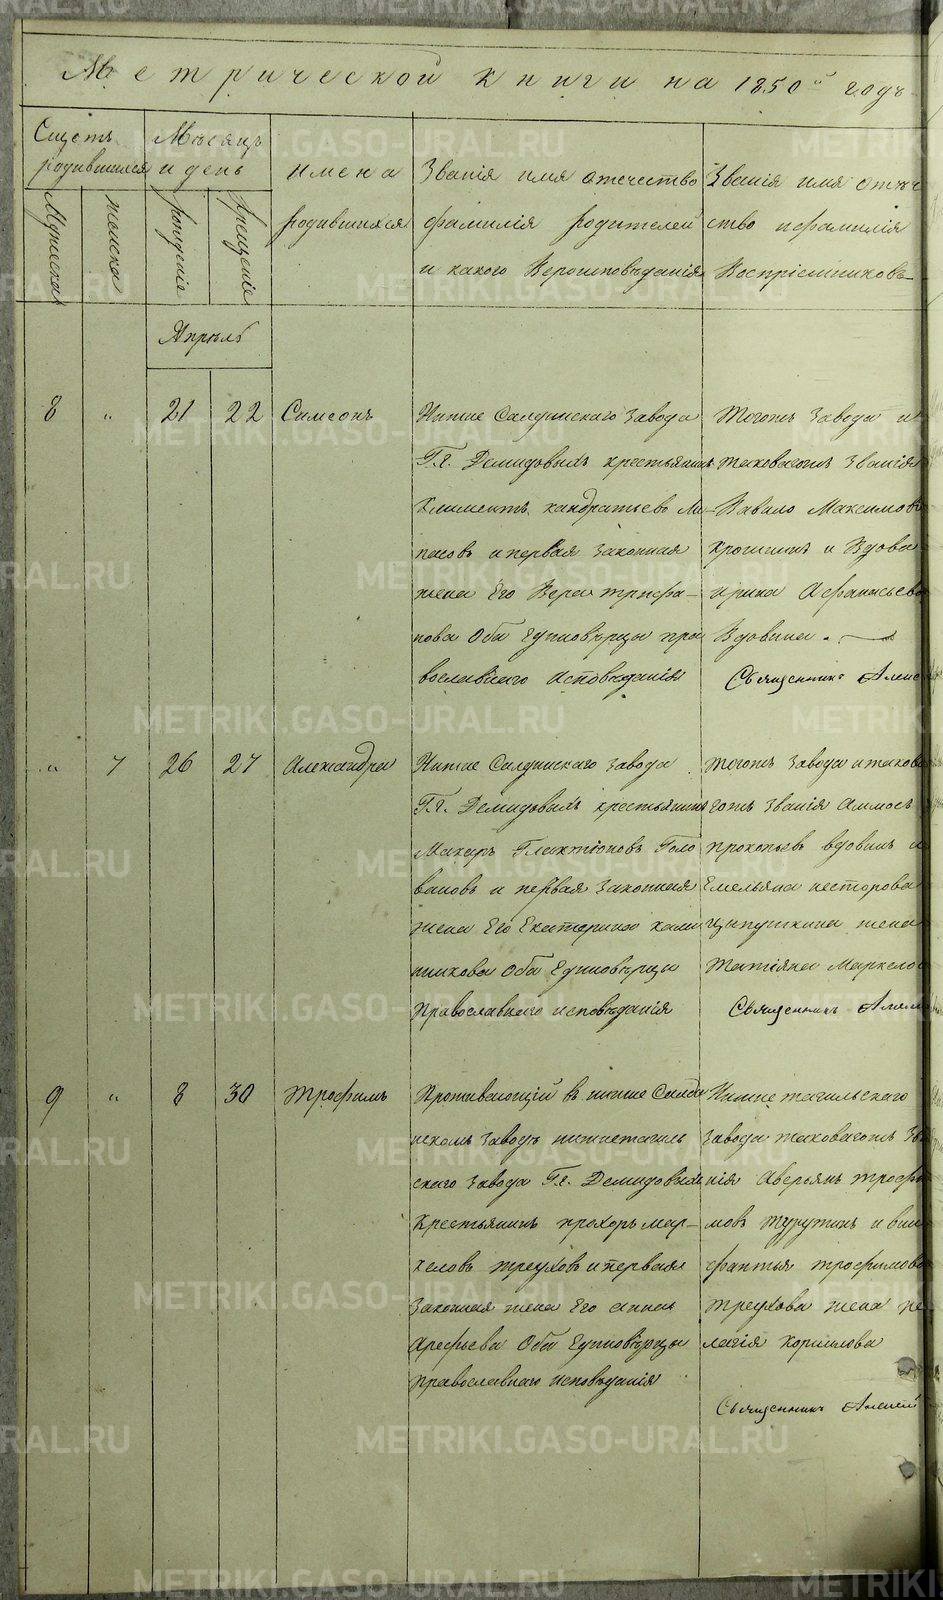 Метрической книги на 1850й годъ
Счетъ родившихся
Мужеска
женска
Мѣсяцъ и день
рожденіе
Крещеніе
имена родившихся
Званія имя отечество
фамилія родителей
и какого Вероисповѣданія
Званія имя отече
ство и фамилія
Воспріемниковъ
Апрѣль
8 " 21 22 Симеонъ
Нижне Салдинскаго Завода
Гг. Демидовыхъ крестьянинъ
Климентъ кандратьевъ
пасовъ и первая законная
жена Его Вера трифа-
нова Оба Единовѣрцы пра
вославнаго исповѣданія
Тогожъ Завода и
таковагожъ Званія
Вавило Максимов
и Вдова
ирина Афанасьева
Вдовина.
Священникъ Алекс
" 7 26 27 Александра
Нижне Салдинскаго Завода
Гг. Демидовыхъ крестьянинъ
Макаръ Галактіоновъ Голо
вановъ и первая Законная
жена Его Екатерина
никова Оба Единовѣрцы
Православнаго исповѣданія
тогожъ Завода и таково
гожъ Званія Аммосъ
прокопьевъ вдовинъ и
Емельяна несторова
Цыпушкина жена
Татіяна Маркело
Священникъ Алекс
9 " 8 30 Трофимъ
Проживающій въ нижне Салди
нскомъ Заводѣ нижнетагиль
скаго завода Гг. Демидовыхъ
Крестьянинъ прохоръ мар-
келовъ треуховъ и первая
Законная жена Его анна
Арефьева Оба Единовѣрцы
Православнаго исповѣданія
Нижне тагильскаго
завода таковагожъ Зва
нія Аверьянъ трофи
мовъ турутинъ и
трофимова
треухова жена пе
лагія Корнилова
Священникъ Алексей
METRIKI.GASO-URAL.RU